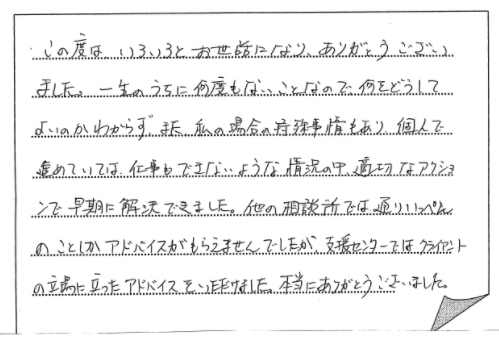 この度は、いろいろとお世話になり、ありがとうござい
ました。一生のうちに何度もないことなので何をどうして
よいのかわからず また 私の場合の特殊事情もあり、個人で
進めていては、仕事もできないような情況の中、適切なアクショ
ンで早期に解決できました。他の相談所では通りいっぺん
のことしかアドバイスがもらえませんでしたが、支援センターではクライアント
の立場に立ったアドバイスをいただけました。本当にありがとうございました。